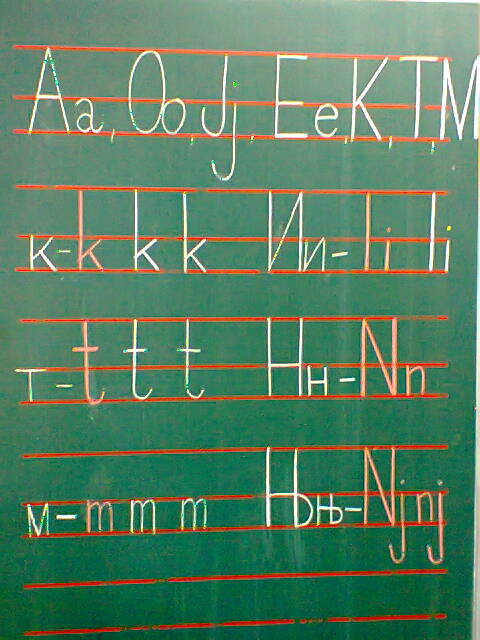 Aa, Oo, Jj, Ee, K, T, M
к-k k k Ии-Ii Ii
т-t t t Нн-Nn
м-m m m Њњ-Njnj